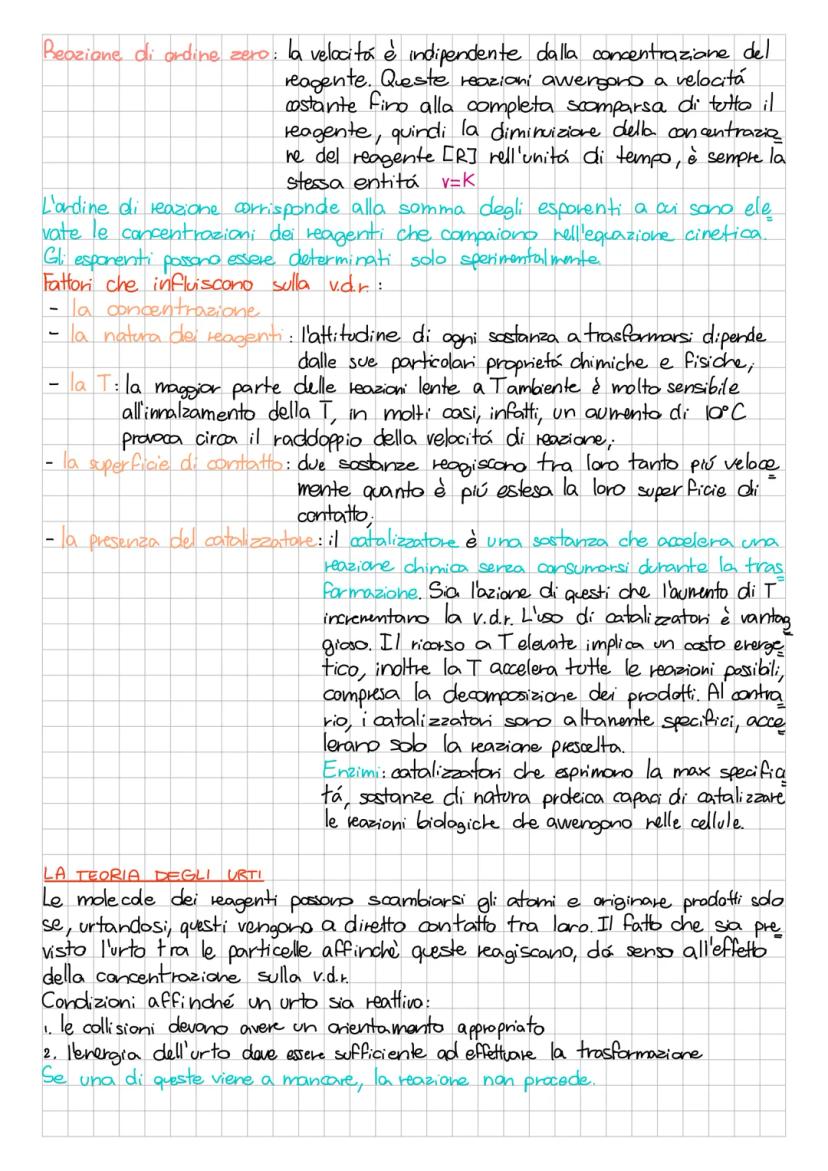 Reazione di ordine zero: la velocitá è indipendente dalla concentrazione del
reagente. Queste reazioni avvengono a velocitá
costante fino alla completa scomparsa di tutto il
reagente, quindi la diminuizione della concentrazio
ne del reagente [R] nell'unitá di tempo, è sempre la
stessa entitá v=K
L'ordine di reazione corrisponde alla somma degli esponenti a cui sono ele
vate le concentrazioni dei reagenti che compaiono nell'equazione cinetica.
Gli esponenti possono essere determinati solo sperimentalmente.
Fattori che influiscono sulla v.d.r.:
- la concentrazione
- la natura dei reagenti: l'attitudine di ogni sostanza a trasformarsi dipende
dalle sue particolari proprietá chimiche e fisiche;
- la T: la maggior parte delle reazioni lente a Tambiente è molto sensibile
all'innalzamento della T, in molti casi, infatti, un aumento di 10°C
provoca circa il raddoppio della velocitá di reazione;
- la superficie di contatto: due sostanze reagiscono tra loro tanto piú veloce
mente quanto è piú estesa la loro superficie di
contatto;
- la presenza del catalizzatore: il catalizzatore è una sostanza che accelera una
reazione chimica senza consumarsi durante la tras
formazione. Sia l'azione di questi che l'aumento di T
incrementano la v.d.r. L'uso di catalizzatori è vantag
gioso. Il ricorso a T elevate implica un costo energe
tico, inoltre la T accelera tutte le reazioni possibili,
compresa la decomposizione dei prodotti. Al contra
rio, i catalizzatori sono altamente specifici, acce
lerano solo la reazione prescelta.
Enzimi: catalizzatori che esprimono la max specifici
tá, sostanze di natura proteica capaci di catalizzare
le reazioni biologiche che avvengono nelle cellule.
LA TEORIA DEGLI URTI
Le molecole dei reagenti possono scambiarsi gli atomi e originare prodotti solo
se, urtandosi, questi vengono a diretto contatto tra loro. Il fatto che sia pre
visto l'urto tra le particelle affinchè queste reagiscano, dá senso all'effetto
della concentrazione sulla v.d.r.
Condizioni affinché un urto sia reattivo:
1. le collisioni devono avere un orientamento appropriato
2. l'energia dell'urto deve essere sufficiente ad effettuare la trasformazione
Se una di queste viene a mancare, la reazione non procede.